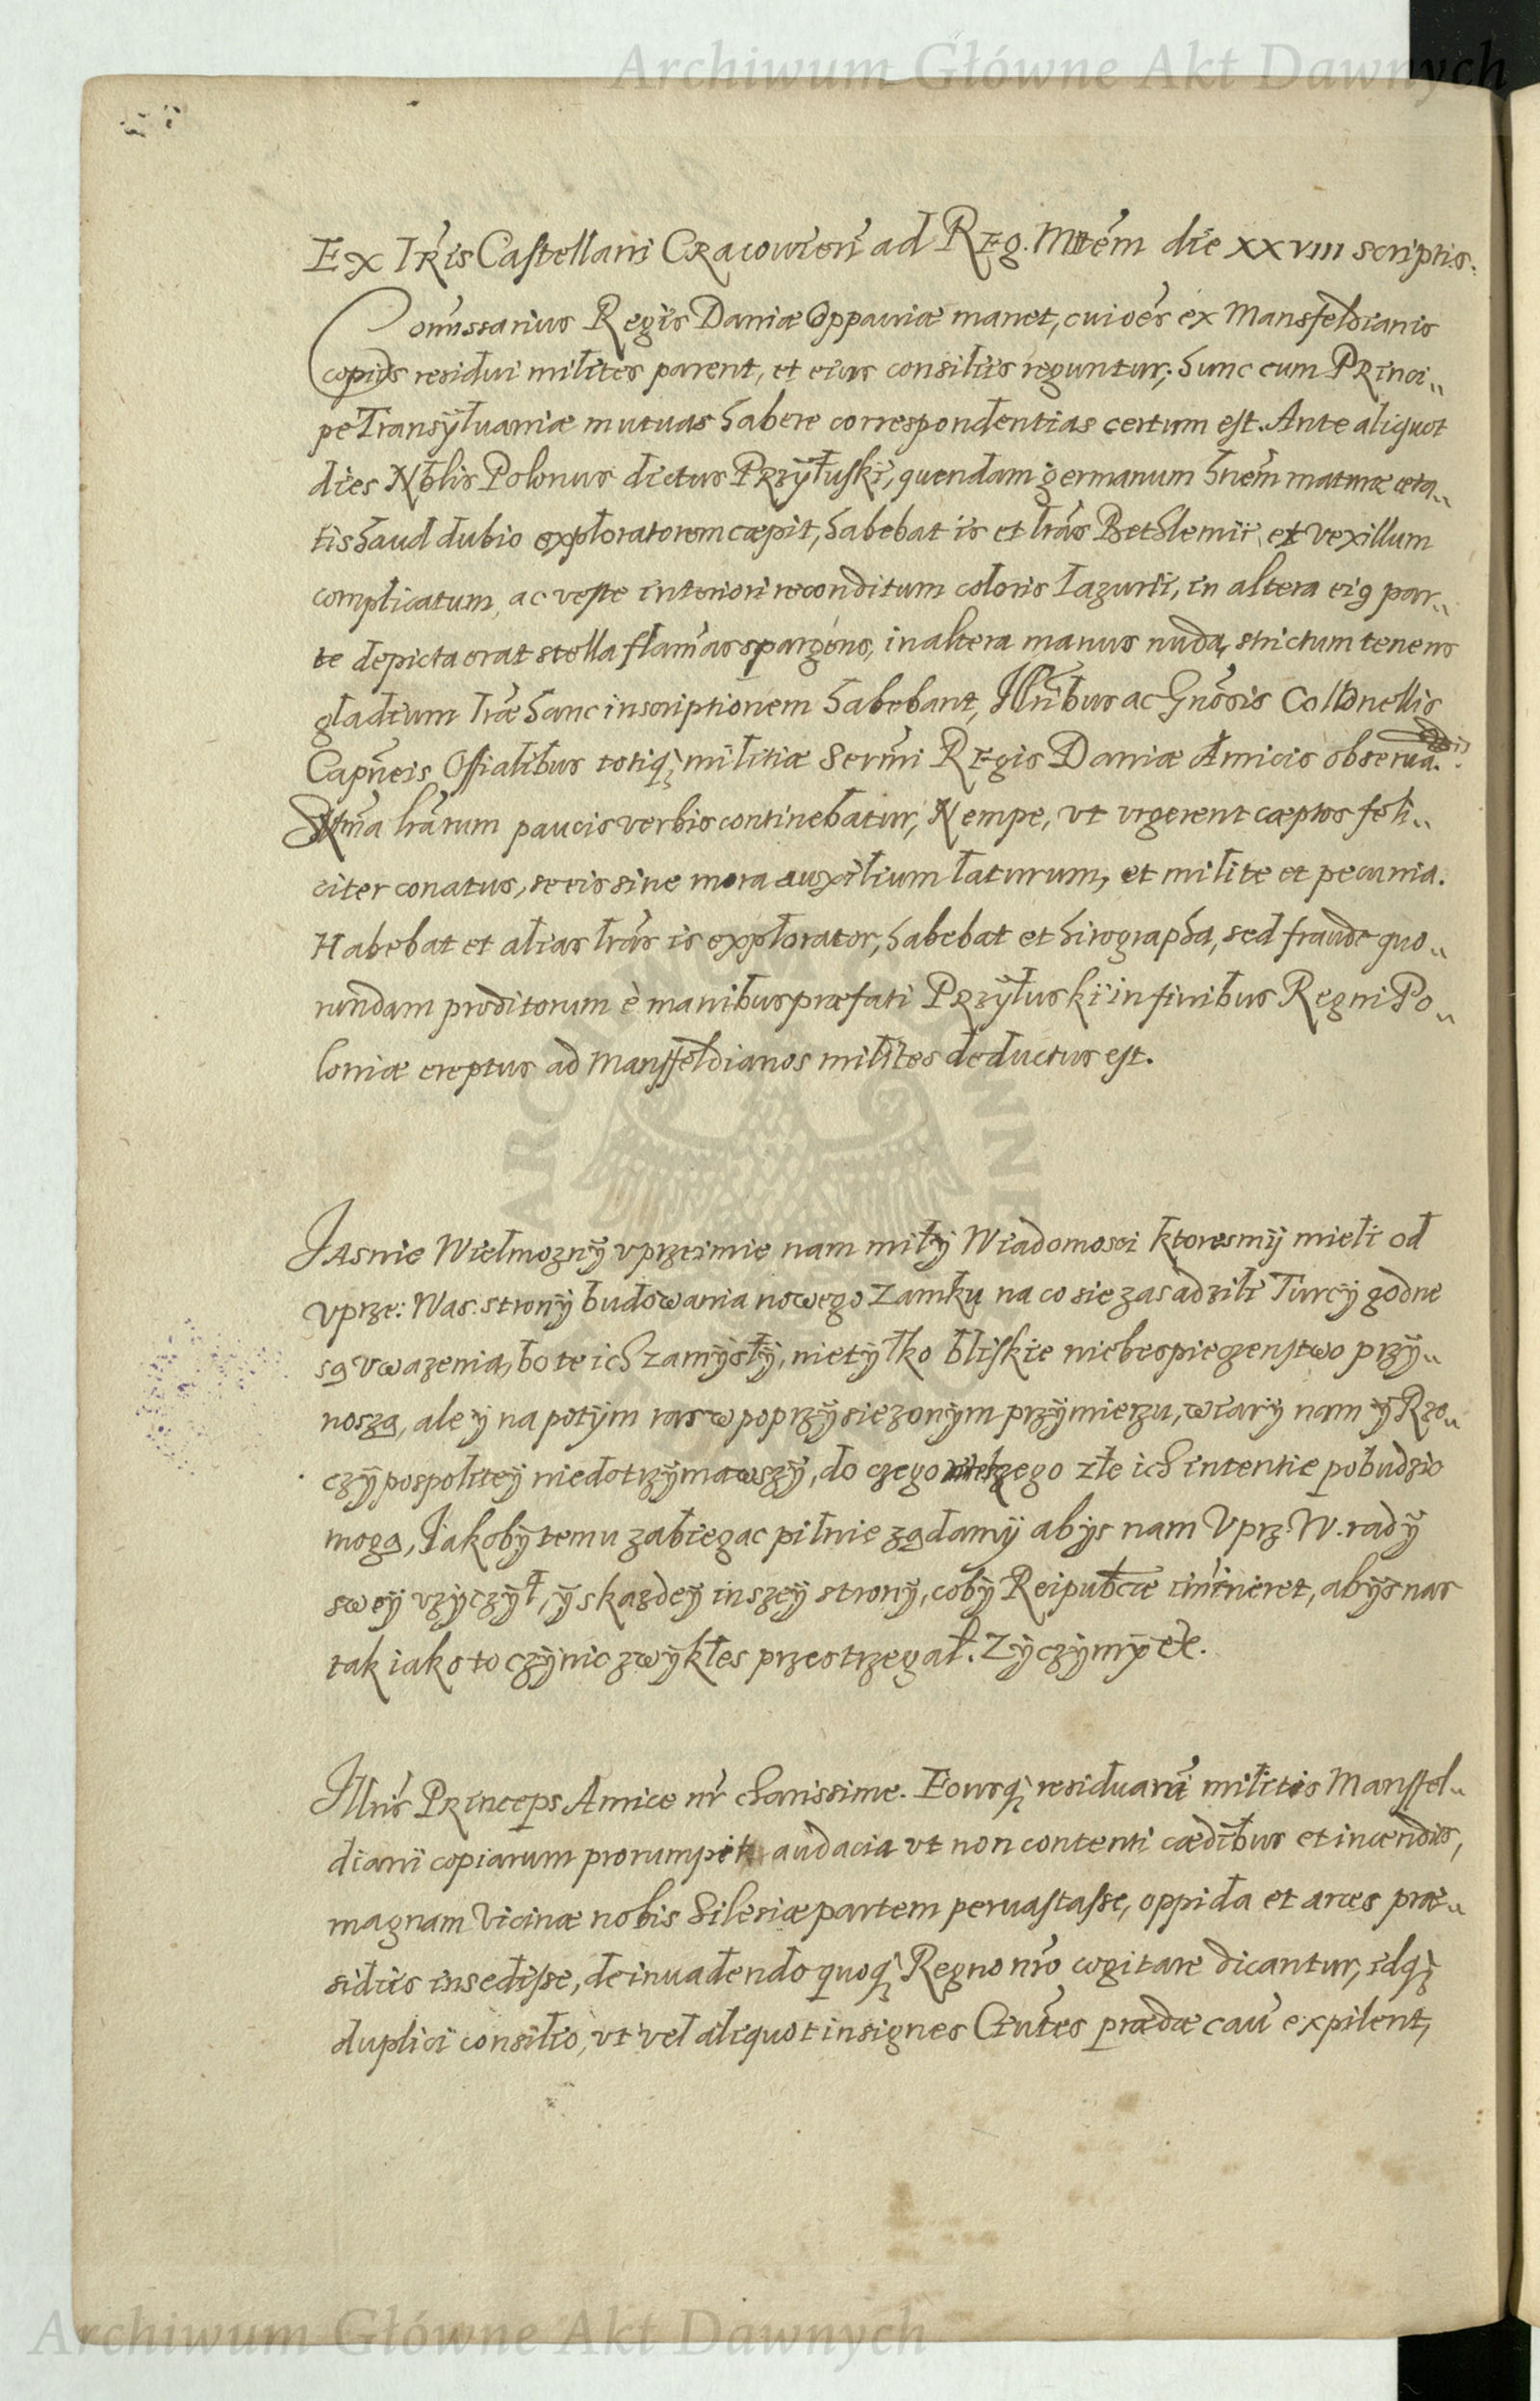 Archiwum Główne Akt Dawnych
Ex lr̃is Castellani Cracovieñ ad Reg. Mttẽm die XXVIII scriptis.
Com̃issarius Regis Daniæ Oppaviæ manet, cui oẽs ex Mansfeldianis
copijs residui milites parent, et eius consiliis reguntur; hunc cum Princi„
pe Transÿlvaniæ mutuas habere correspondentias certum est. Ante aliquot
dies Nb̃lis Polonus dictus Przÿłuski, quendam germanum hñem maturæ æta„
tis haud dubio exploratorem cæpit, habebat is et lrãs Bethlemii, et vexillum
complicatum, ac veste interiori reconditum coloris lazurii, in altera eiꝯ par„
te depicta erat stella flam̃as spargens, in altera manus nuda, strictum tenens
gladium lræ hanc inscriptionem habebant, Illr̃ibus ac Gñosis Collonellis
Capñeis Offialibus totiq; militiæ Serm̃i Regis Daniæ Amicis observa.
Sum̃a lrãrum paucis verbis continebatur, Nempe, vt vrgerent cæptos feli„
citer conatus, se eis sine mora auxilium laturum, et milite et pecunia.
Habebat et alias lrãs is explorator, habebat et hirographa, sed fraude quo„
rundam proditorum è manibus præfati Przÿłuski in finibus Regni Po„
loniæ ereptus ad Mansfeldianos milites deductus est.
Jasnie Wielmoznÿ vprzeimie nam miłÿ Wiadomosci ktoresmÿ mieli od
Vprze: Was. stronÿ budowania nowego Zamku na co sie zasadzili Turcÿ godne
są vwazenia, bo te ich zamÿsłÿ, nietÿlko bliskie niebespieczenstwo przÿ„
noszą, ale ÿ na potÿm ras w poprzÿsiezonÿm przÿmierzu, wiarÿ nam ÿ Rze„
czÿpospolitey niedotrzÿmawszÿ, do czego zle ich intentie pobudzic
mogą, Jakobÿ temu zabiegac pilnie ządamÿ abÿs nam Vprz. W. radÿ
sweÿ vzÿczÿł, ÿ skazdeÿ inszeÿ stronÿ, cobÿ Reipublcæ im̃ineret, abÿs nas
tak iakoto czÿnic zwÿkłes przestrzegał. Zÿczÿmÿ etc.
Illr̃is Princeps Amice nr̃ charissime. Eousq; residuarũ militis Mansfel„
diani copiarum prorumpit audacia vt non contenti cædibus et incendiis,
magnam vicinæ nobis Silesiæ partem pervastasse, oppida et arces præ„
sidiis insedisse, de invadendo quoq; Regno nr̃o cogitare dicantur, idq;
duplici consilio, vt vel aliquot insignes Civtẽs prædæ caũ expilent,
Archiwum Główne Akt Dawnych